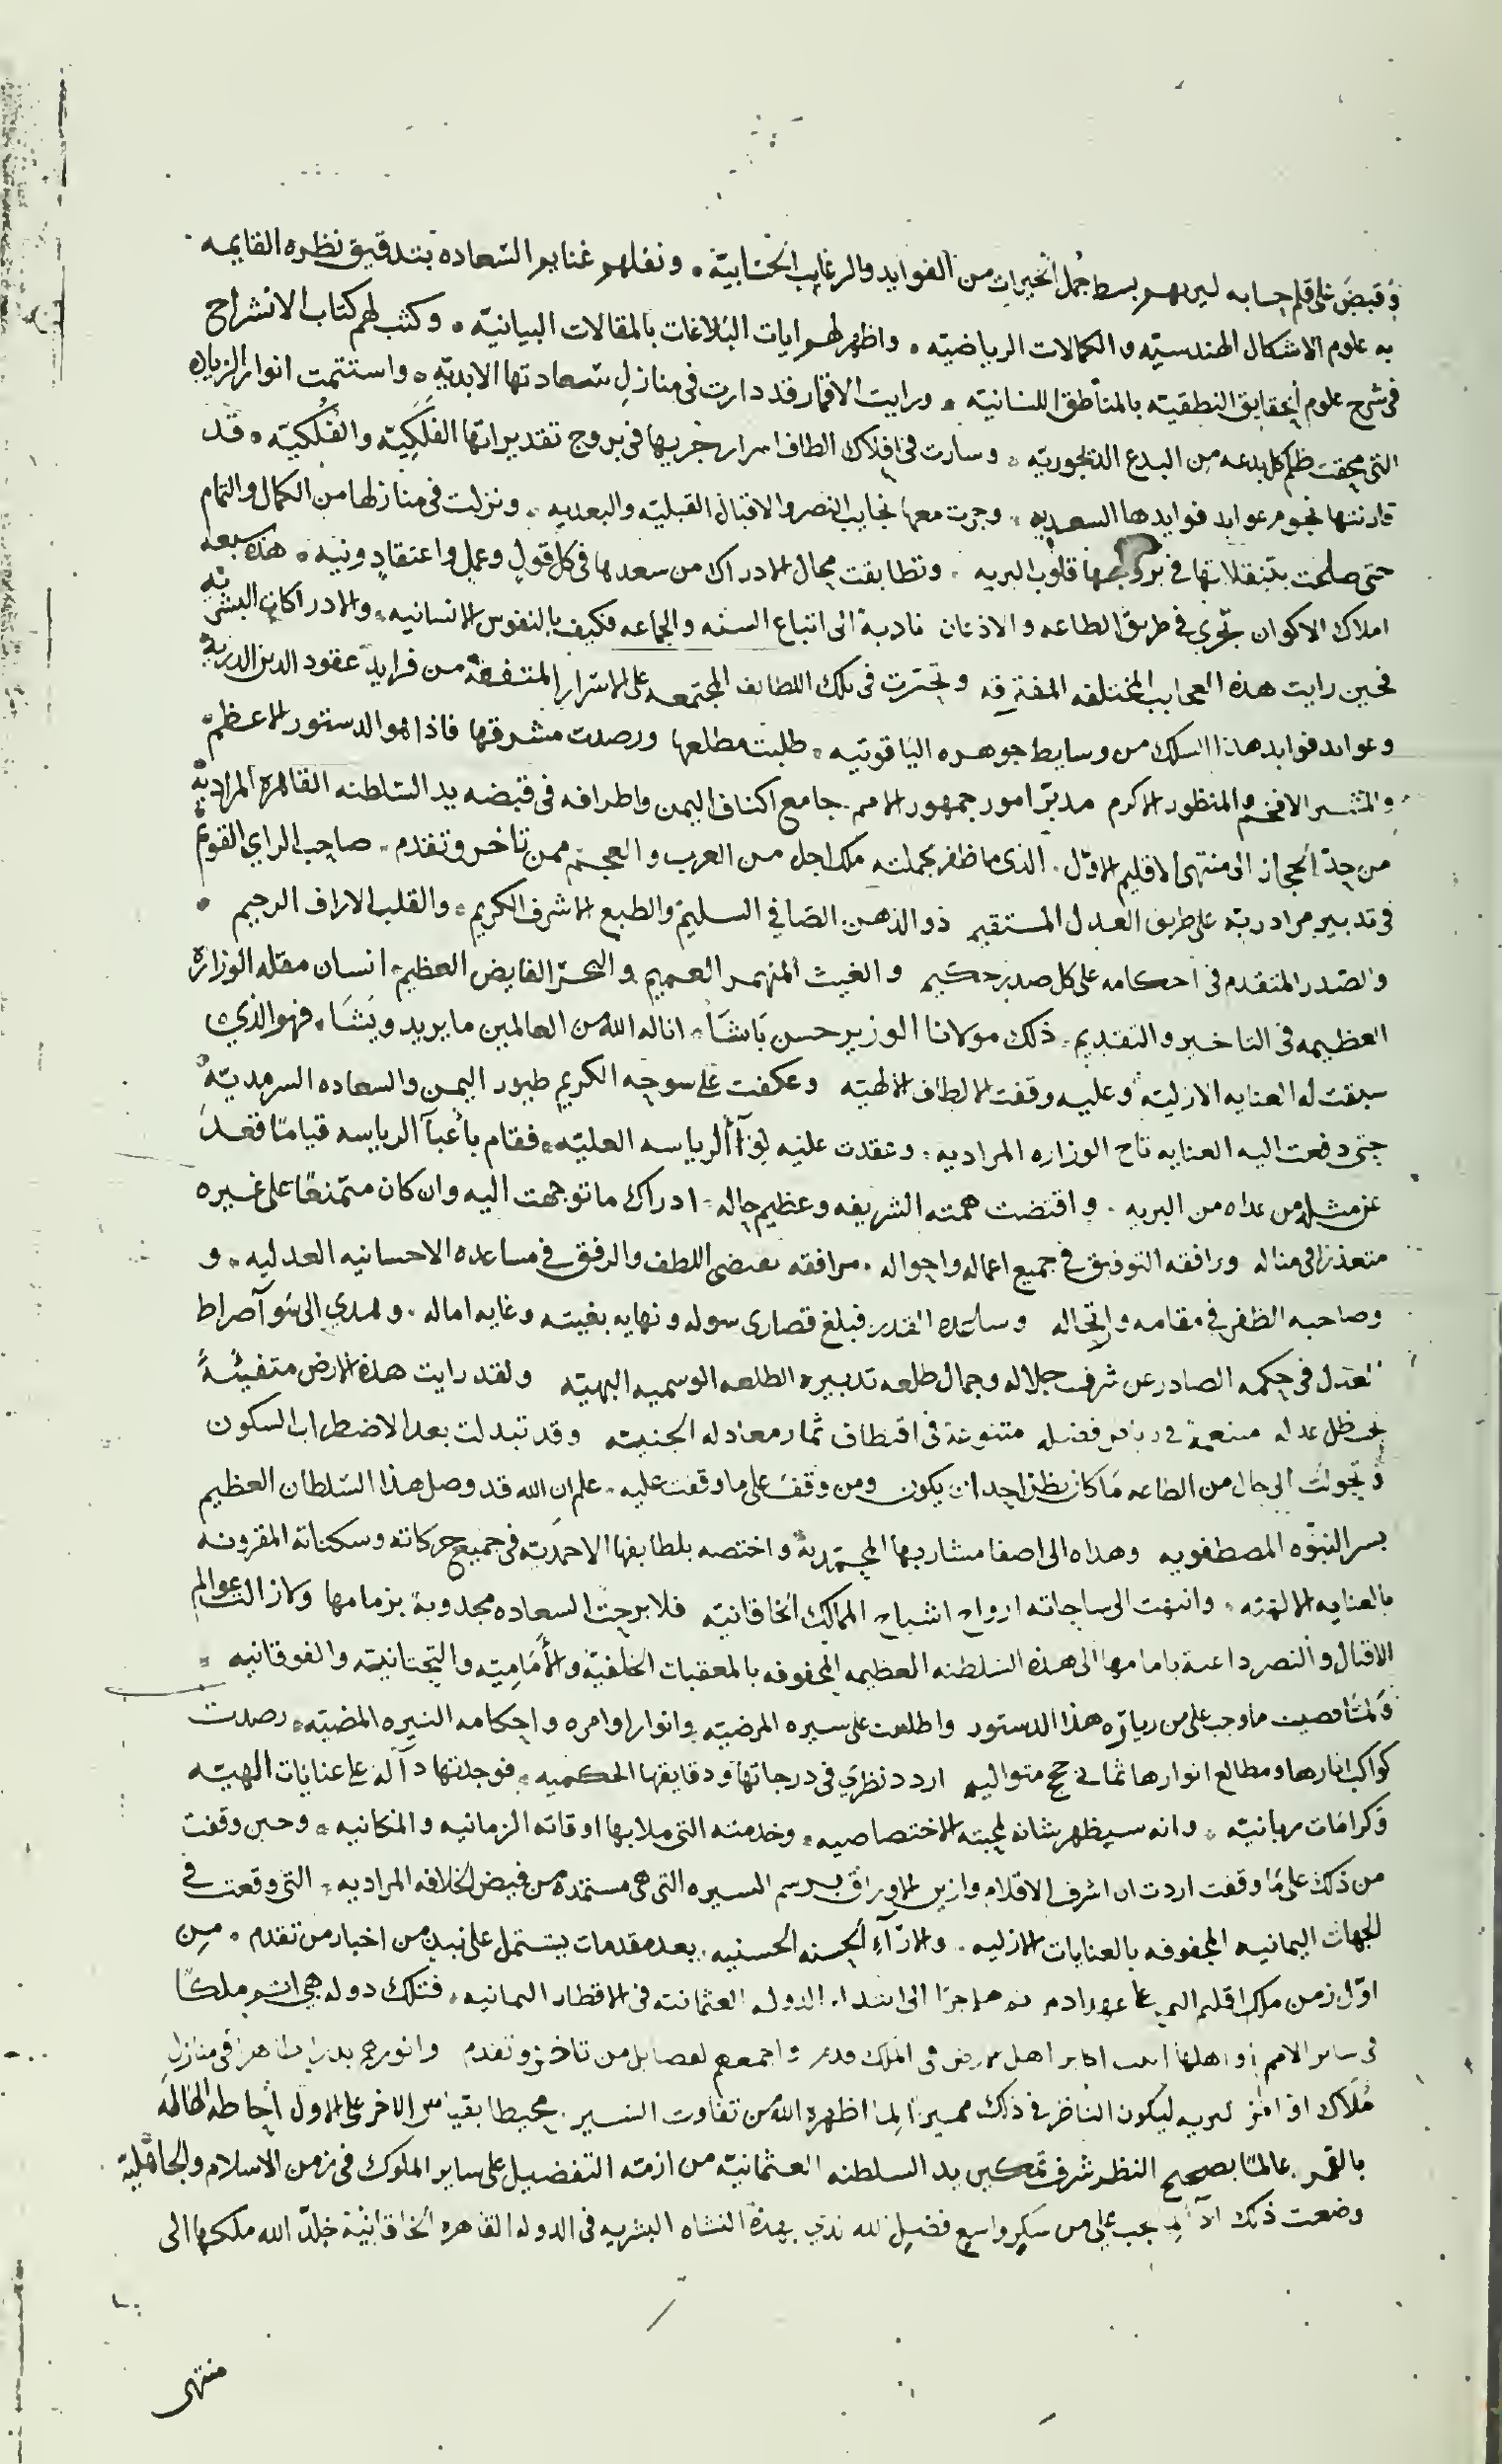 وقبض على قلم حسابه ليريهم بسط جمل الخيرات من الفوايد والرغايب الحسابية . ونفلهم غنايم السعاده بتدقيق نظره القايمه
به علوم الاشكال الهندسيّه والكمالات الرياضيّه . واظهر لهم ايات البلاغات بالمقالات البيانيّه . وكتب لهم كتاب الانشراح
فى شرح علوم الحقايق النطقيّه بالمناطق اللسانيّه . ورايت الاقمار قد دارت فى منازل سعادتها الابديّه . واستتمت انوار الزياده
التى محقت ظلم كل بدعه من البدع الديجوريّه . وسارت فى افلاك الطاف اسرار جريها فى بروج تقديراتها الفلكيّه والفلكيّه . قد
قارنتها نجوم عوايد فوايدها السعديه . وجرت معها نجايب النصر والاقبال القبليّه والبعديه . ونزلت فى منازلها من الكمال والتمام
حتى صلحت بتنقلاتها فى قلوب البريه . وتطابقت مجال الادراك من سعدها فى كل قول وعمل واعتقاد ونيه . هذه سبعه
املاك الاكوان تجرى فى طريق الطاعه والاذعان نادبة الى اتباع السنه والجماعه فكيف بالنفوس الانسانيه . والادراكات البشريّه
فحين رايت هذه العجايب المختلفه المفترقه وتحيّرت فى تلك اللطائف المجتمعه على الاسرار المتفقة من فرايد عقود الدين الدريّة
وعوايد فوايد هذا السلك من وسايط جوهره الياقوتيه . طلبت مطلعها ورصدت مشرقها فاذا هو الدستور الاعظم
والمشير الافخم والمنظور الاكرم مدبّر امور جمهور الامم . جامع اكناف اليمن واطرافه فى قبضه يد السلطنه القاهرة المراديّة
من حدّ الحجاز الى منتهى الاقليم الاوّل . الذى ما ظفر بجملته ملك اجل من العرب والعجم ممن تاخر وتقدم . صاحب الراي القويم
فى تدبير مراد ربّه على طريق العدل المستقيم ذو الذهن الصافي السليم والطبع الاشرف الكريم . والقلب الاراف الرحيم .
والصّدر المتقدم فى احكامه على كل صدر حكيم والغيث المنهمر العميم والبحر الفايض العظيم . انسان مقله الوزارة
العظيمه فى التاخير والتقديم . ذلك مولانا الوزير حسن باشا . اناله الله من العالمين ما يريد ويشا . فهو الذي
سبقت له العنايه الازليّه وعليه وقفت الالطاف الالهيّه وعكفت على سوحه الكريم طيور اليمن والسعاده السرمديّة
حتى دفعت اليه العنايه تاج الوزاره المراديه . وعقدت عليه لوآ الرياسه العليّه . فقام باعبآ الرياسه قيامًا قعد
عن مثله من عداه من البريه . واقتضت همته الشريفه وعظيم حاله . ادراك ما توجهت اليه وان كان متمنعًا على غيره
متعذرا فى مناله ورافقه التوفيق فى جميع اعماله واحواله . مرافقه تقتضى اللطف والرفق فى مساعده الاحسانيه العدليه . و
وصاحبه الظفر فى مقامه وارتحاله وساعده القدر فبلغ قصارى سوله ونهايه بغيته وغايه اماله . وهدي الى سوآ صراط
العدل فى حكمه الصادر عن شرف جلاله وجمال طلعه تدبيره الطلعه الوسميه البهيّه ولقد رايت هذه الارض متفيئةً
تحت ظل عدله متنعمة فى رياض فضله متنوعة فى اقتطاف ثمار معادله الجنيّه وقد تبدلت بعد الاضطراب السكون
وتحولت الى حال من الطاعه ما كان يظن احد ان يكون ومن وقف على ما وقفت عليه . علم ان الله قد وصل هذا السّلطان العظيم
بسر النبوّه المصطفويه وهداه الى اصفا مشاربها المحمّدية واختصه بلطايفها الاحمديّه فى جميع حركاته وسكناته المقرونه
بالعنايه الالهيّه . وانتهت الى ساحاته ارواح اشباح الممالك الخاقانيّه فلا برحت السعاده مجذوبة بزمامها ولا زالت عوالم
الاقبال والنصر داعية بامامها الى هذه السّلطنه العظيمه المحفوفه بالمعقبات الخلفيّه والأماميّه والتحتانيّه والفوقانيه .
ولمّا قضيت ما وجب على من زيارة هذا الدستور واطلعت على سيره المرضيّه وانوار اوامره واحكامه النيره المضيّه . رصدت
كواكب اثارها ومطالع انوارها ثمانى حجج متواليه اردد نظرى فى درجاتها ودقايقها الحكميه . فوجدتها دآلة على عنايات الهيّه
وكرامات ربانيّه . وانه سيظهر شانه لمحبته الاختصاصيه . وخدمته التى ملا بها اوقاته الزمانيه والمكانيه . وحين وقفت
من ذلك على ما وقفت اردت ان اشرف الاقلام وازين الاوراق برسم السيره التى هى مستمدة من فيض الخلافه المراديه . التى وقعت فى
الجهات اليمانيه المحفوفه بالعنايات الازليه . والارآء الحسنه الحسنيه . بعد مقدمات يشتمل على نبذ من اخبار من تقدم . من
اوّل زمن ملك اقليم اليمن على عهد ادم ثم هلم جرا الى ابتدا الدوله العثمانيّه فى الاقطار اليمانيه . فتلك دوله هي اتم ملكًا
فى ساير الامم واهلها اهل الارض فى الملك قدم واجمعهم لفضايل من تاخر وتقدم وانورهم بدرا ظاهرا فى منازل
ليكون الناظر فى ذلك مميزا لما اظهره الله من تفاوت السير . محيطا بقياس الاخر على الاول احاطه الهاله
بالقمر . عالمًا بصحيح النظر شرف تمكين يد السلطنه العثمانيّه من ازمّة التفضيل على ساير الملوك فى زمن الاسلام والجاهليّة
وضعت ذلك يجب على من شكر واسع فضيل الله بهذه النشاه البشريه فى الدوله القاهره الخاقانيّة خلّد الله ملكها الى
منتهى